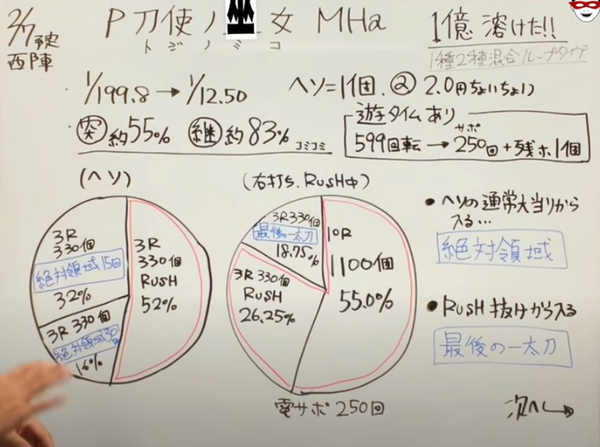 2/7予定
西陣
P 刀使ノ 女 MHa
トジノミコ
1億 溶けた!!
1種2種混合ループタイプ
1/199.8 → 1/12.50
ヘソ=1個. ② 2.0円ちょいちょい
突 約55% 継 約83% コミコミ
遊タイムあり
599回転 → 250回 + 残ホ1個
サポ
(ヘソ)
3R
330個
RUSH
52%
3R
330個
絶対領域15回
32%
3R 330個
絶対領域30回
16%
(右打ち. RUSH中)
10R
1100個
55.0%
3R 330個
RUSH
26.25%
3R 330個
最後の一太刀
18.75%
電サポ 250回
•ヘソの通常大当りから
入る…
絶対領域
•RUSH 抜けから入る
最後の一太刀
次へ→